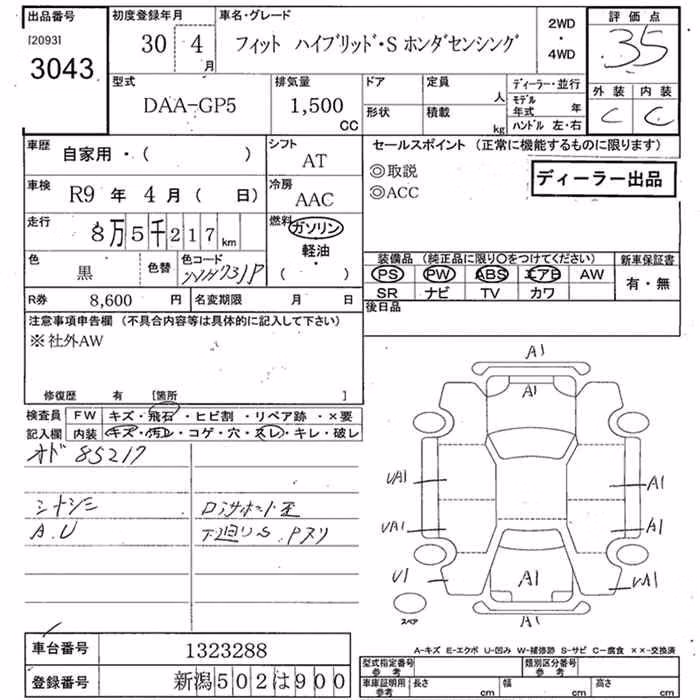 出品番号
[2093]
3043
初度登録年月
30 4
月
車名・グレード
フィット ハイブリッド・S ホンダセンシング
2WD
・
4WD
評価点
3.5
外装 内装
C C
型式
DAA-GP5
排気量
1,500
CC
ドア
形状
定員
人
積載
kg
ディーラー・並行
モデル
年式 年
ハンドル 左・右
車歴
自家用・( )
シフト
AT
車検
R9 年 4 月 ( 日)
冷房
AAC
走行
8万5千217km
燃料
ガソリン
軽油・
( )
色
黒
色替
色コード
R券 8,600 円
名変期限 月 日
セールスポイント (正常に機能するものに限ります)
◎取説
◎ACC
ディーラー出品
装備品 (純正品に限り○をつけてください)
PS PW ABS エアB AW
SR ナビ TV カワ
新車保証書
有・無
後日品
注意事項申告欄 (不具合内容等は具体的に記入して下さい)
※社外AW
修復歴 有 [箇所 ]
検査員
記入欄
FW キズ・飛石・ヒビ割・リペア跡・×要
内装 キズ・汚レ・コゲ・穴・スレ・キレ・破レ
オド 85217
A.U
下廻りS.Pヌリ
A1
A1
UA1
A1
UA1
A1
U1
A1
UA1
A1
スペア
A-キズ E-エクボ U-凹み W-補修跡 S-サビ C-腐食 ××-交換済
車台番号 1323288
登録番号 新潟502は900
型式指定番号
参考
類別区分番号
参考
車庫証明用
参考
長さ cm
幅 cm
高さ cm